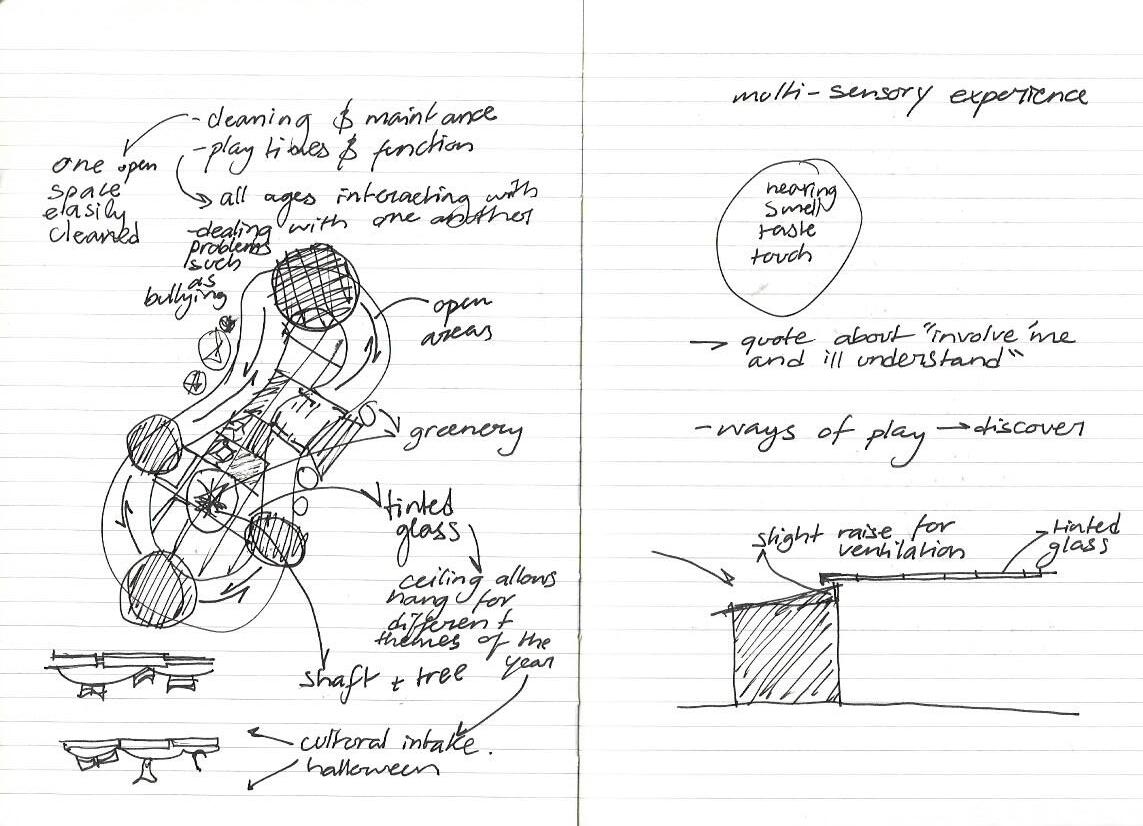 - cleaning & maintance
- play times & function
one open
space
easily
cleaned
all ages interacting with
one another
- dealing with
problems
such
as
bullying
open
areas
greenery
tinted
glass
ceiling allows
hang for
different
themes of the
year
shaft + tree
cultural intake.
halloween
multi-sensory experience
hearing
smell
taste
touch
→ quote about "involve me
and ill understand"
- ways of play → discover
slight raise for
ventilation
tinted
glass